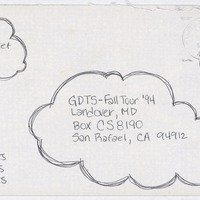 GDTS-Fall Tour '94
Landover, MD
Box CS8190
San Rafael, CA 94912